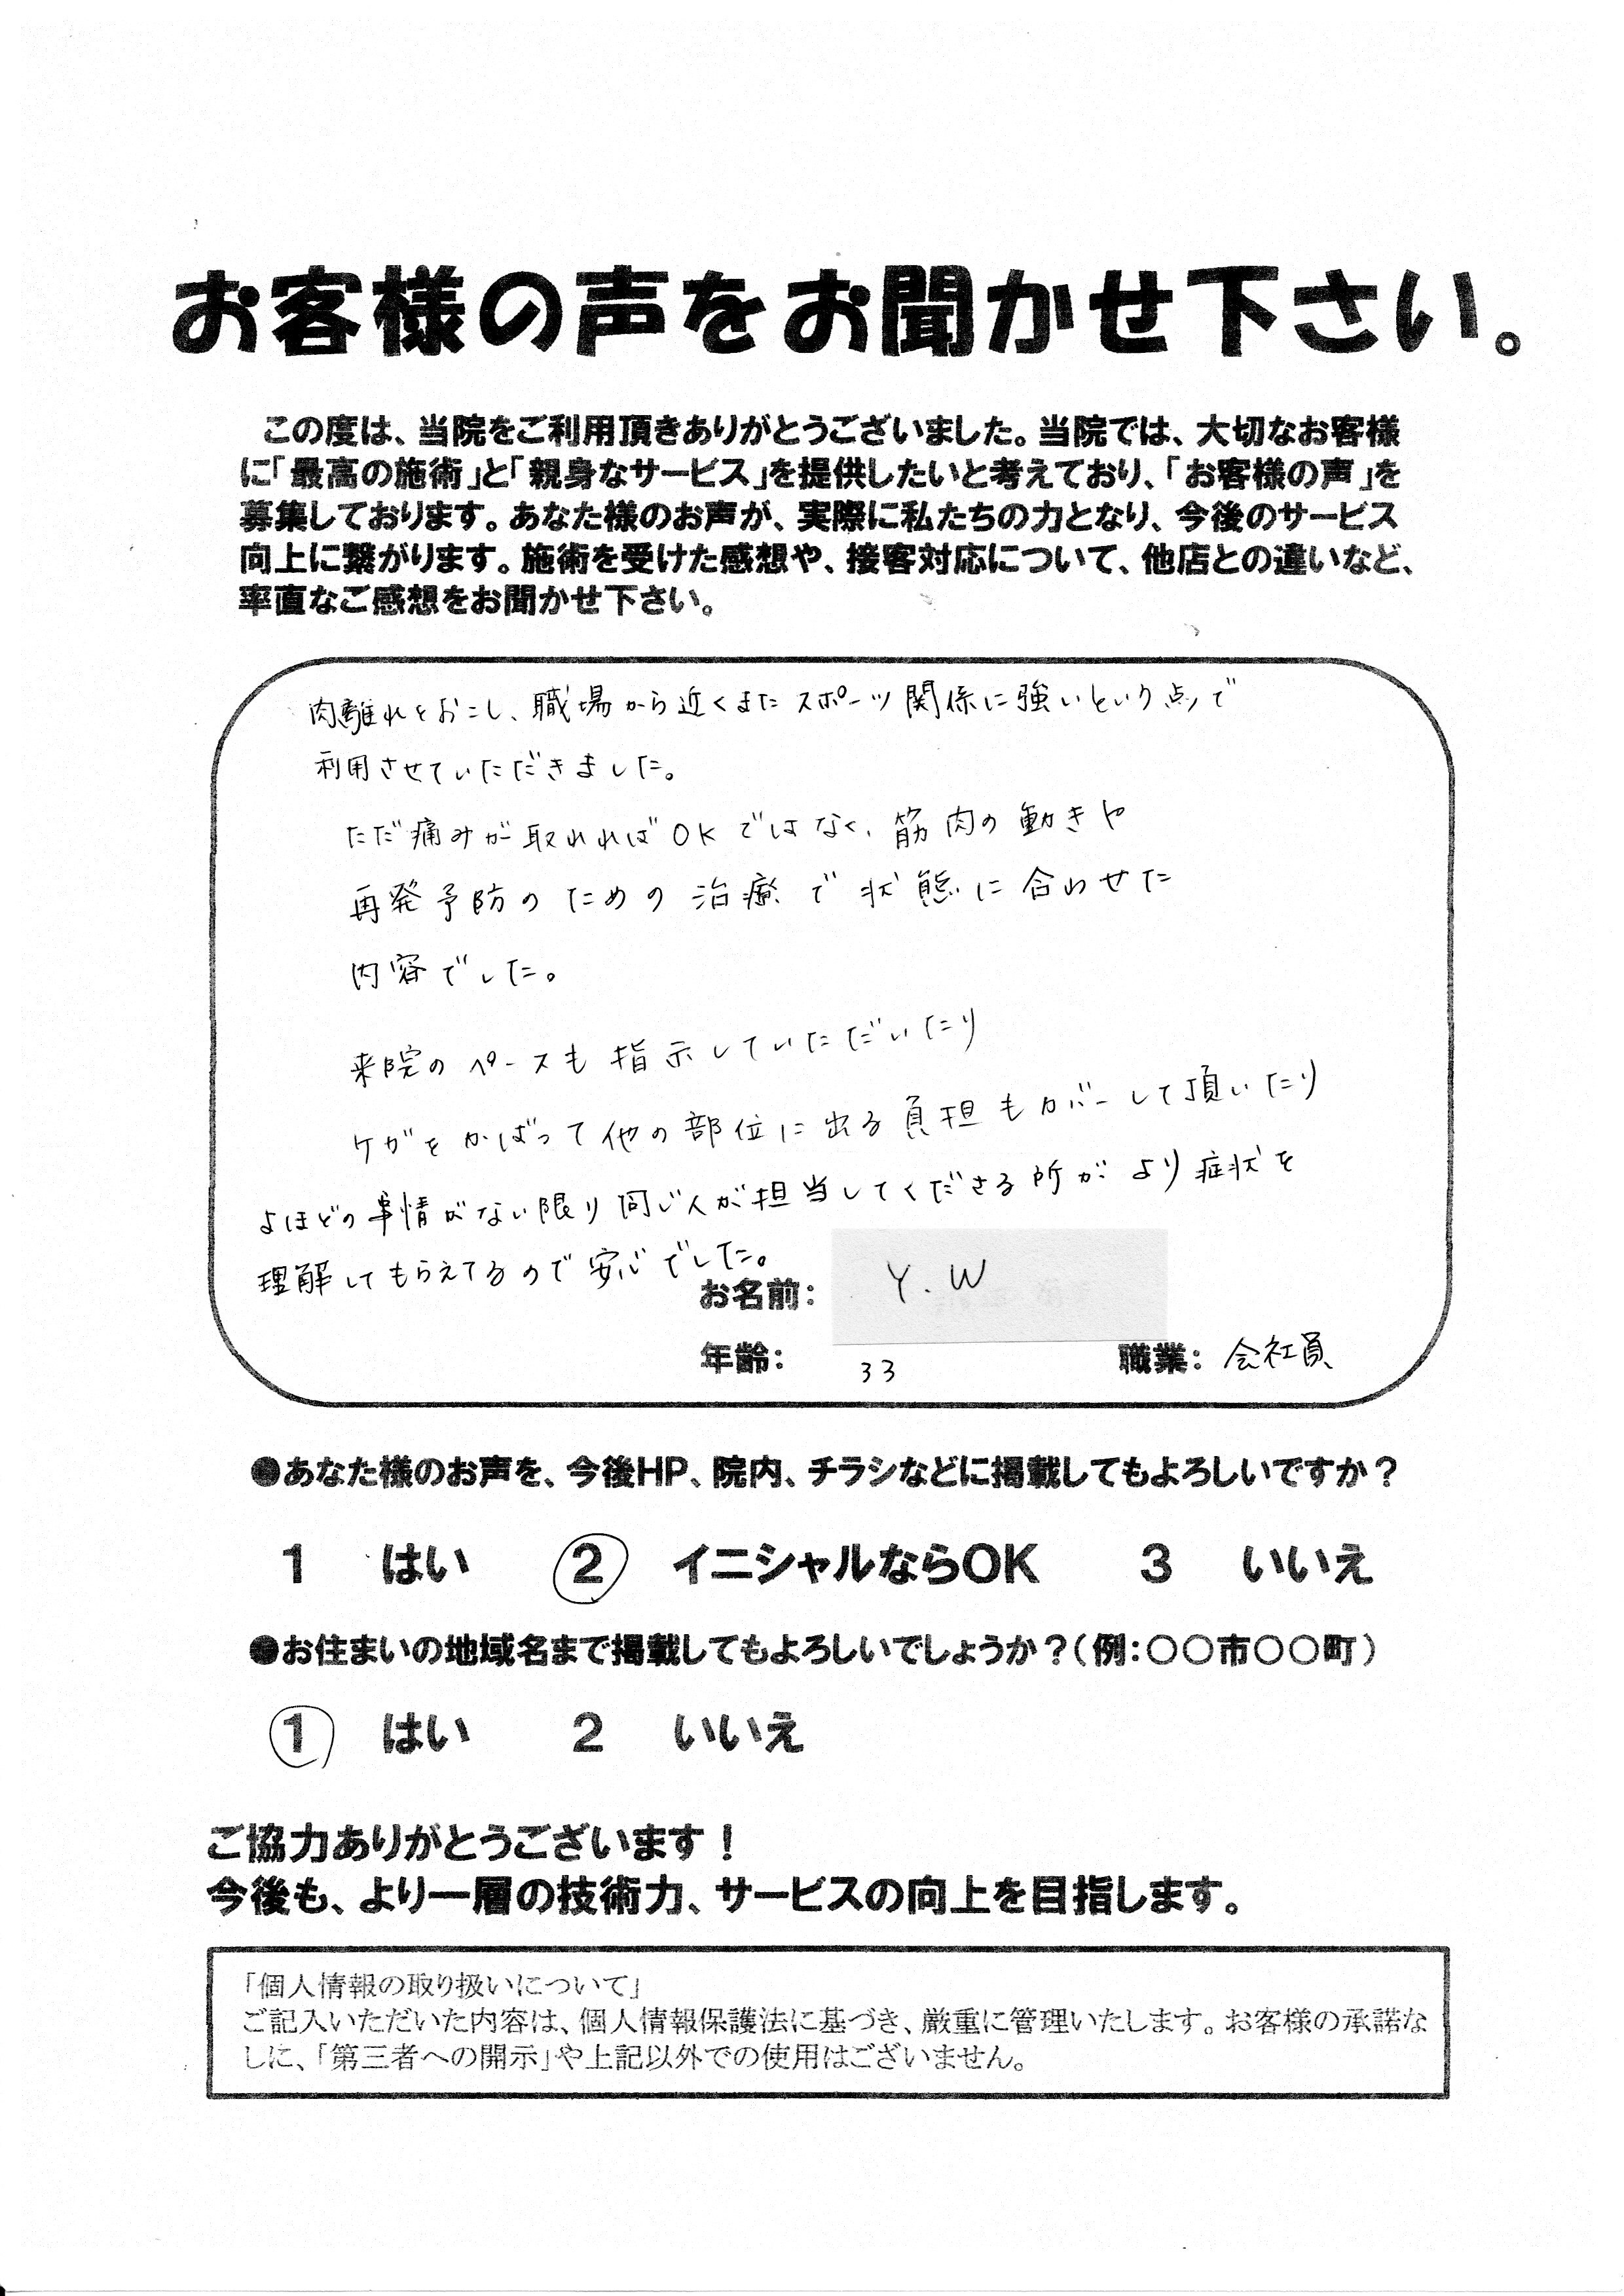 お客様の声をお聞かせ下さい。
この度は、当院をご利用頂きありがとうございました。当院では、大切なお客様
に「最高の施術」と「親身なサービス」を提供したいと考えており、「お客様の声」を
募集しております。あなた様のお声が、実際に私たちの力となり、今後のサービス
向上に繋がります。施術を受けた感想や、接客対応について、他店との違いなど、
率直なご感想をお聞かせ下さい。
肉離れをおこし、職場から近くまたスポーツ関係に強いという点で
利用させていただきました。
ただ痛みが取れればOKではなく、筋肉の動きや
再発予防のための治療で状態に合わせた
内容でした。
来院のペースも指示していただいたり
ケガをかばって他の部位に出る負担もカバーして頂いたり
よほどの事情がない限り同じ人が担当してくださる所がより症状を
理解してもらえてるので安心でした。
お名前： Y.W
年齢： 33 職業： 会社員
●あなた様のお声を、今後HP、院内、チラシなどに掲載してもよろしいですか？
1 はい 2 イニシャルならOK 3 いいえ
●お住まいの地域名まで掲載してもよろしいでしょうか？（例：〇〇市〇〇町）
1 はい 2 いいえ
ご協力ありがとうございます！
今後も、より一層の技術力、サービスの向上を目指します。
「個人情報の取り扱いについて」
ご記入いただいた内容は、個人情報保護法に基づき、厳重に管理いたします。お客様の承諾な
しに、「第三者への開示」や上記以外での使用はございません。